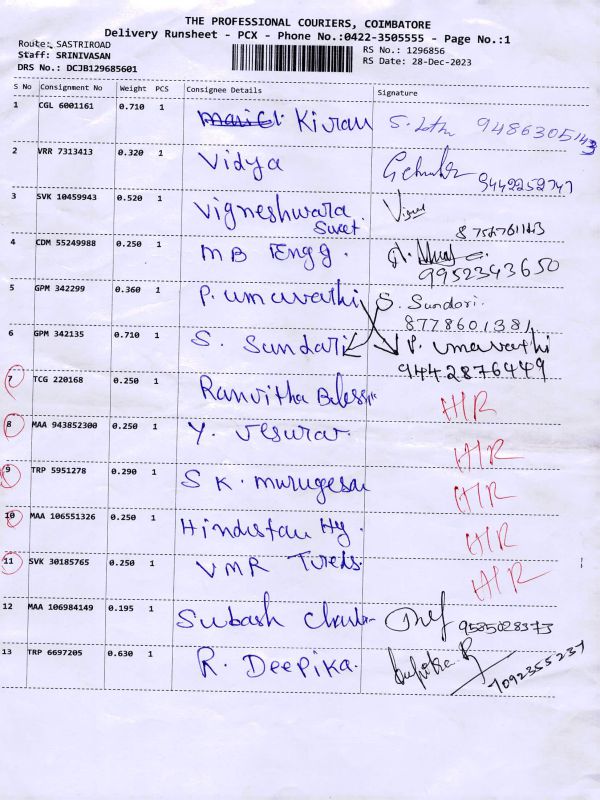 THE PROFESSIONAL COURIERS, COIMBATORE
Delivery Runsheet - PCX - Phone No.:0422-3505555 - Page No.:1
Route: SASTRIROAD
RS No.: 1296856
Staff: SRINIVASAN
RS Date: 28-Dec-2023
DRS No.: DCJB129685601
S No Consignment No Weight PCS Consignee Details Signature
1 CGL 6001161 0.710 1 Kiran 9486305143
2 VRR 7313413 0.320 1 Vidya 9442252747
3 SVK 10459943 0.520 1 Vigneshwara
Sweet.
4 CDM 55249988 0.250 1 MB Engg.
9952343650
5 GPM 342299 0.360 1 P. Umavathi S. Sundari.
8778601381
6 GPM 342135 0.710 1 S. Sundari P. Umavathi
9442876449
7 TCG 220168 0.250 1 Ranvitha
8 MAA 943852300 0.250 1 Y.
9 TRP 5951278 0.290 1 S K. Murugesan
10 MAA 106551326 0.250 1 Hindustan Hy.
11 SVK 30185765 0.250 1 VMR
12 MAA 106984149 0.195 1 Subash 9585028373
13 TRP 6697205 0.630 1 R. Deepika. 7092355237